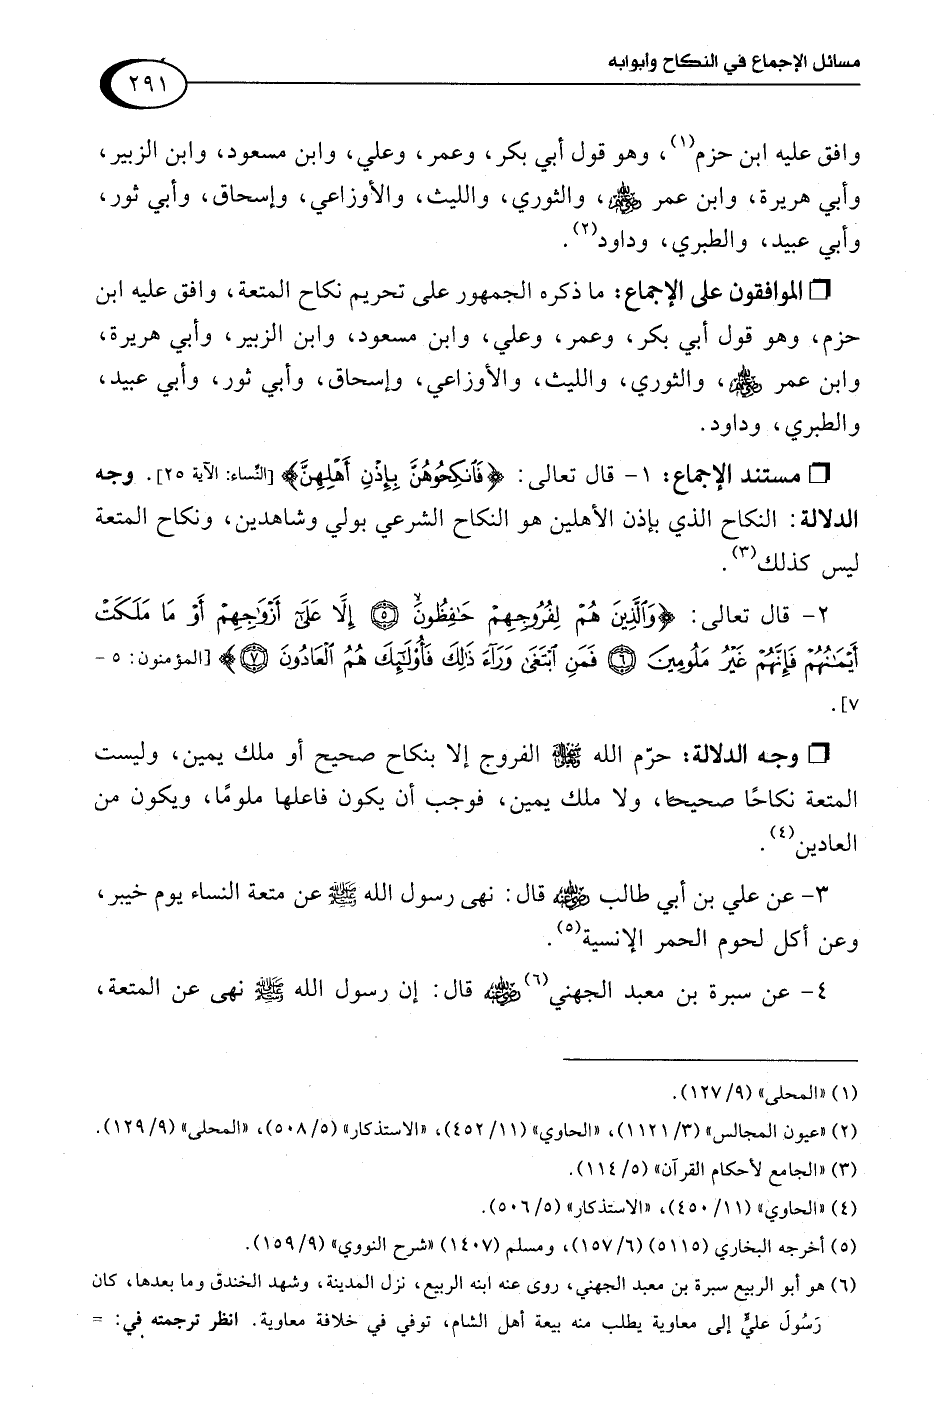 مسائل الإجماع في النكاح وأبوابه
٢٩١
وافق عليه ابن حزم(١)، وهو قول أبي بكر، وعمر، وعلي، وابن مسعود، وابن الزبير،
وأبي هريرة، وابن عمر ﷺ، والثوري، والليث، والأوزاعي، وإسحاق، وأبي ثور،
وأبي عبيد، والطبري، وداود(٢).
❒ الموافقون على الإجماع: ما ذكره الجمهور على تحريم نكاح المتعة، وافق عليه ابن
حزم، وهو قول أبي بكر، وعمر، وعلي، وابن مسعود، وابن الزبير، وأبي هريرة،
وابن عمر ﷺ، والثوري، والليث، والأوزاعي، وإسحاق، وأبي ثور، وأبي عبيد،
والطبري، وداود.
❒ مستند الإجماع: ١- قال تعالى: ﴿فَٱنكِحُوهُنَّ بِإِذْنِ أَهْلِهِنَّ﴾ [النِّساء: الآية ٢٥]. وجه
الدلالة: النكاح الذي بإذن الأهلين هو النكاح الشرعي بولي وشاهدين، ونكاح المتعة
ليس كذلك(٣).
٢- قال تعالى: ﴿وَٱلَّذِينَ هُمْ لِفُرُوجِهِمْ حَٰفِظُونَۙ ٥ إِلَّا عَلَىٰٓ أَزْوَٰجِهِمْ أَوْ مَا مَلَكَتْ
أَيْمَٰنُهُمْ فَإِنَّهُمْ غَيْرُ مَلُومِينَ ٦ فَمَنِ ٱبْتَغَىٰ وَرَآءَ ذَٰلِكَ فَأُو۟لَٰٓئِكَ هُمُ ٱلْعَادُونَ ٧﴾ [المؤمنون: ٥ -
٧].
❒ وجه الدلالة: حرّم الله ﷻ الفروج إلا بنكاح صحيح أو ملك يمين، وليست
المتعة نكاحًا صحيحًا، ولا ملك يمين، فوجب أن يكون فاعلها ملومًا، ويكون من
العادين(٤).
٣- عن علي بن أبي طالب رضي الله عنه قال: نهى رسول الله ﷺ عن متعة النساء يوم خيبر،
وعن أكل لحوم الحمر الإنسية(٥).
٤- عن سبرة بن معبد الجهني(٦) رضي الله عنه قال: إن رسول الله ﷺ نهى عن المتعة،
(١) «المحلى» (٩/ ١٢٧).
(٢) «عيون المجالس» (٣/ ١١٢١)، «الحاوي» (١١/ ٤٥٢)، «الاستذكار» (٥/ ٥٠٨)، «المحلى» (٩/ ١٢٩).
(٣) «الجامع لأحكام القرآن» (٥/ ١١٤).
(٤) «الحاوي» (١١/ ٤٥٠)، «الاستذكار» (٥/ ٥٠٦).
(٥) أخرجه البخاري (٥١١٥) (٦/ ١٥٧)، ومسلم (١٤٠٧) «شرح النووي» (٩/ ١٥٩).
(٦) هو أبو الربيع سبرة بن معبد الجهني، روى عنه ابنه الربيع، نزل المدينة، وشهد الخندق وما بعدها، كان
رَسُولَ عليٍّ إلى معاوية يطلب منه بيعة أهل الشام، توفي في خلافة معاوية. انظر ترجمته في: =